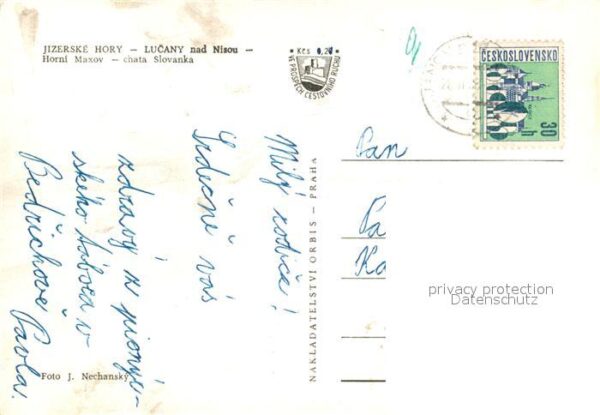 JIZERSKÉ HORY – LUČANY nad Nisou –
Horní Maxov – chata Slovanka
Kčs 0,20
VE PROSPĚCH CESTOVNÍHO RUCHU
ČESKOSLOVENSKO
30
h
Milý rodiče!
Srdečně vás
zdraví z pionýr-
ského tábora v
Bedřichově Pavla.
NAKLADATELSTVÍ ORBIS – PRAHA
Pan
Pa
Ka
privacy protection
Datenschutz
Foto J. Nechanský